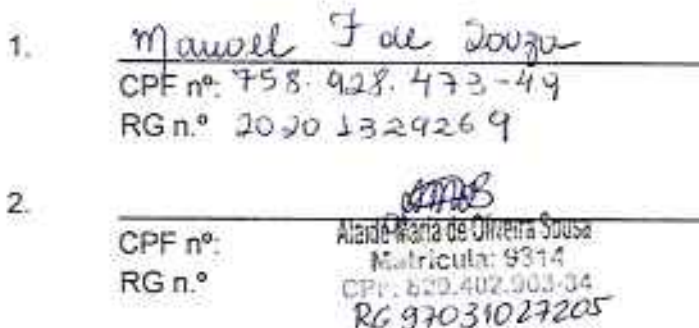 1. Manoel F de Souza
CPF nº: 758.928.473-49
RG n.º 20201329269
2.
CPF nº:
RG n.º
Alaide Maria de Oliveira Sousa
Matricula: 9314
CPF: 620.402.903-34
RG 97031027205